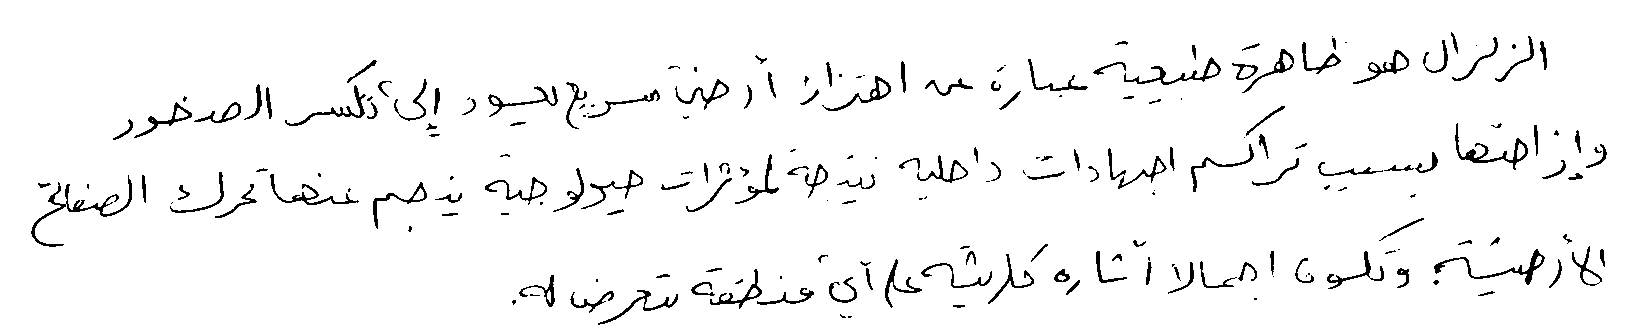 الزلزال هو ظاهرة طبيعية عبارة عن اهتزاز أرضي سريع يعود إلى تكسر الصخور
وإزاحتها بسبب تراكم اجهادات داخلية نتيجة لمؤثرات جيولوجية ينجم عنها تحرك الصفائح
الأرضية. وتكون اجمالا آثاره كارثية على أي منطقة تتعرض له.